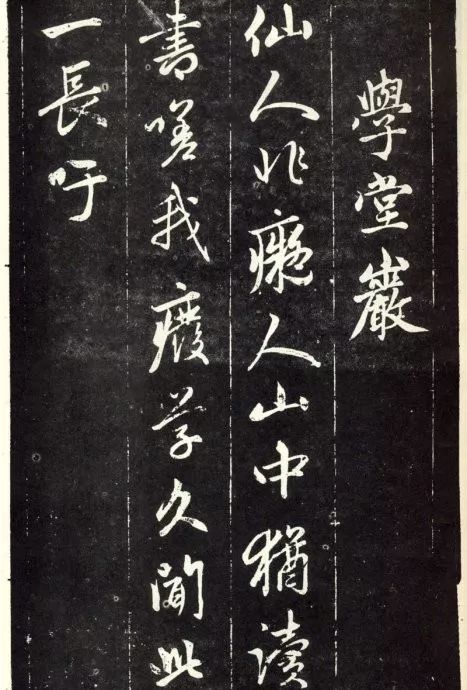 學堂巖
仙人非癡人山中猶讀
書嗟我癈学久聞此
一長吁